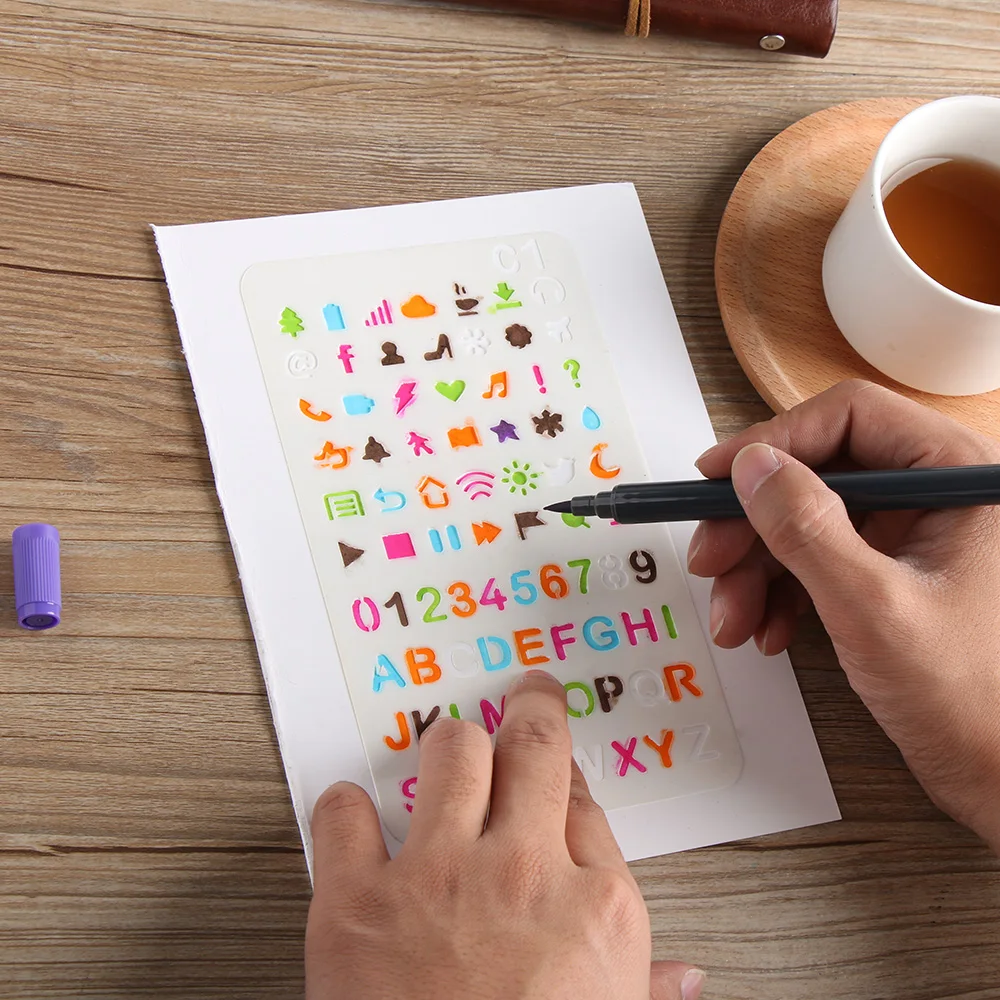 01
@ f
! ?
0123456789
ABCDEFGHI
JK M OPQR
S WXYZ